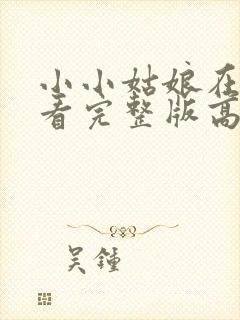 小小姑娘在
看完整版高
吴鍾